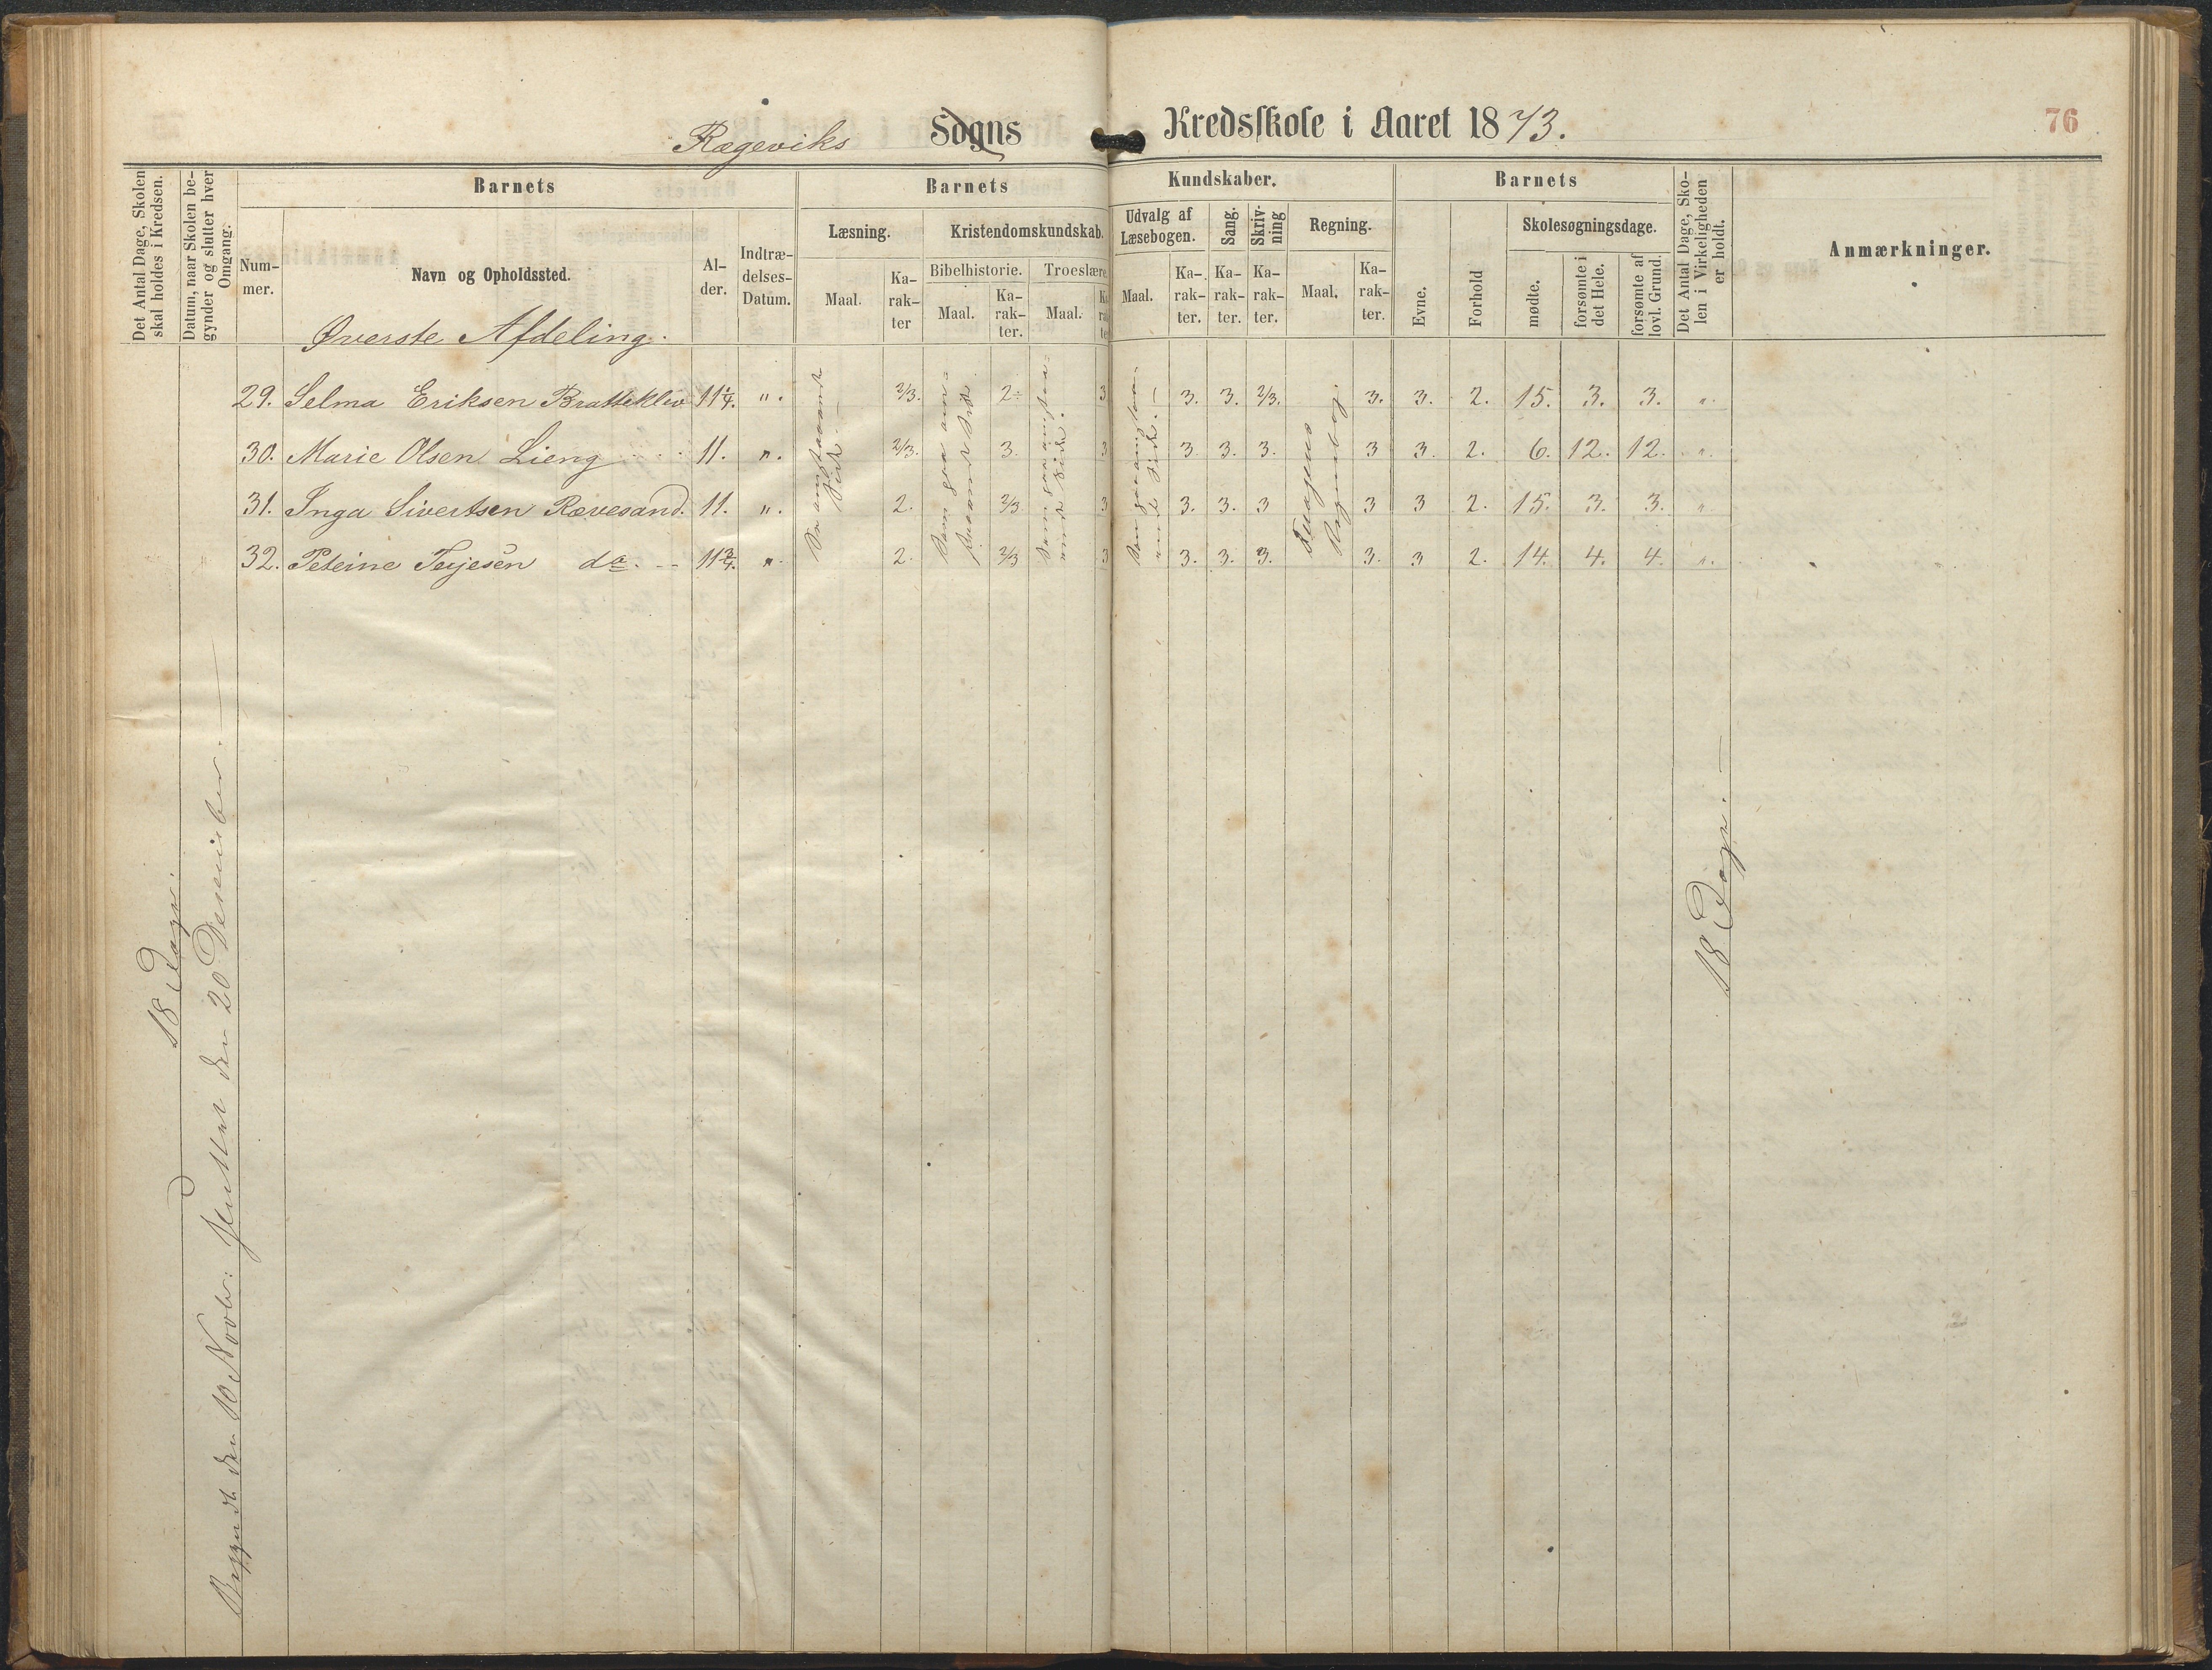 Rægeviks Sogns Kredsskole i Aaret 1873.
76
Det Antal Dage, Skolen skal holdes i Kredsen.
Datum, naar Skolen begynder og slutter hver Omgang.
Barnets
Barnets
Kundskaber.
Barnets
Det Antal Dage, Skolen i Virkeligheden er holdt.
Anmærkninger.
Nummer.
Navn og Opholdssted.
Alder.
Indtrædelses-Datum.
Læsning.
Kristendomskundskab.
Udvalg af Læsebogen.
Sang.
Skrivning
Regning.
Evne.
Forhold
Skolesøgningsdage.
Bibelhistorie.
Troeslære
Maal.
Karakter
Maal.
Karakter.
Maal.
Maal.
Karakter.
Karakter.
Karakter.
Maal.
Karakter.
mødte.
forsømte i det Hele.
forsømte af lovl. Grund.
Øverste Afdeling.
29. Selma Eriksen Bratteklev 11 1/4. ". 2/3. 2 3 3. 3. 2/3. 3. 3. 2. 15. 3. 3. ".
30. Marie Olsen Lieng 11. ". 2/3. 3. 3 3. 3. 3. 3 3. 2. 6. 12. 12. ".
31. Inga Sivertsen Rævesand. 11. ". 2. 2/3 3 3. 3. 3 3 3 2. 15. 3. 3. "
32. Peteine Terjesen do. 11 3/4. ". 2. 2/3 3 3. 3. 3. 3. 3 2. 14. 4. 4. ".
18 Dage.
Begyndt den 10 Novbr: Sluttet den 20 Desember.
18 Dage.